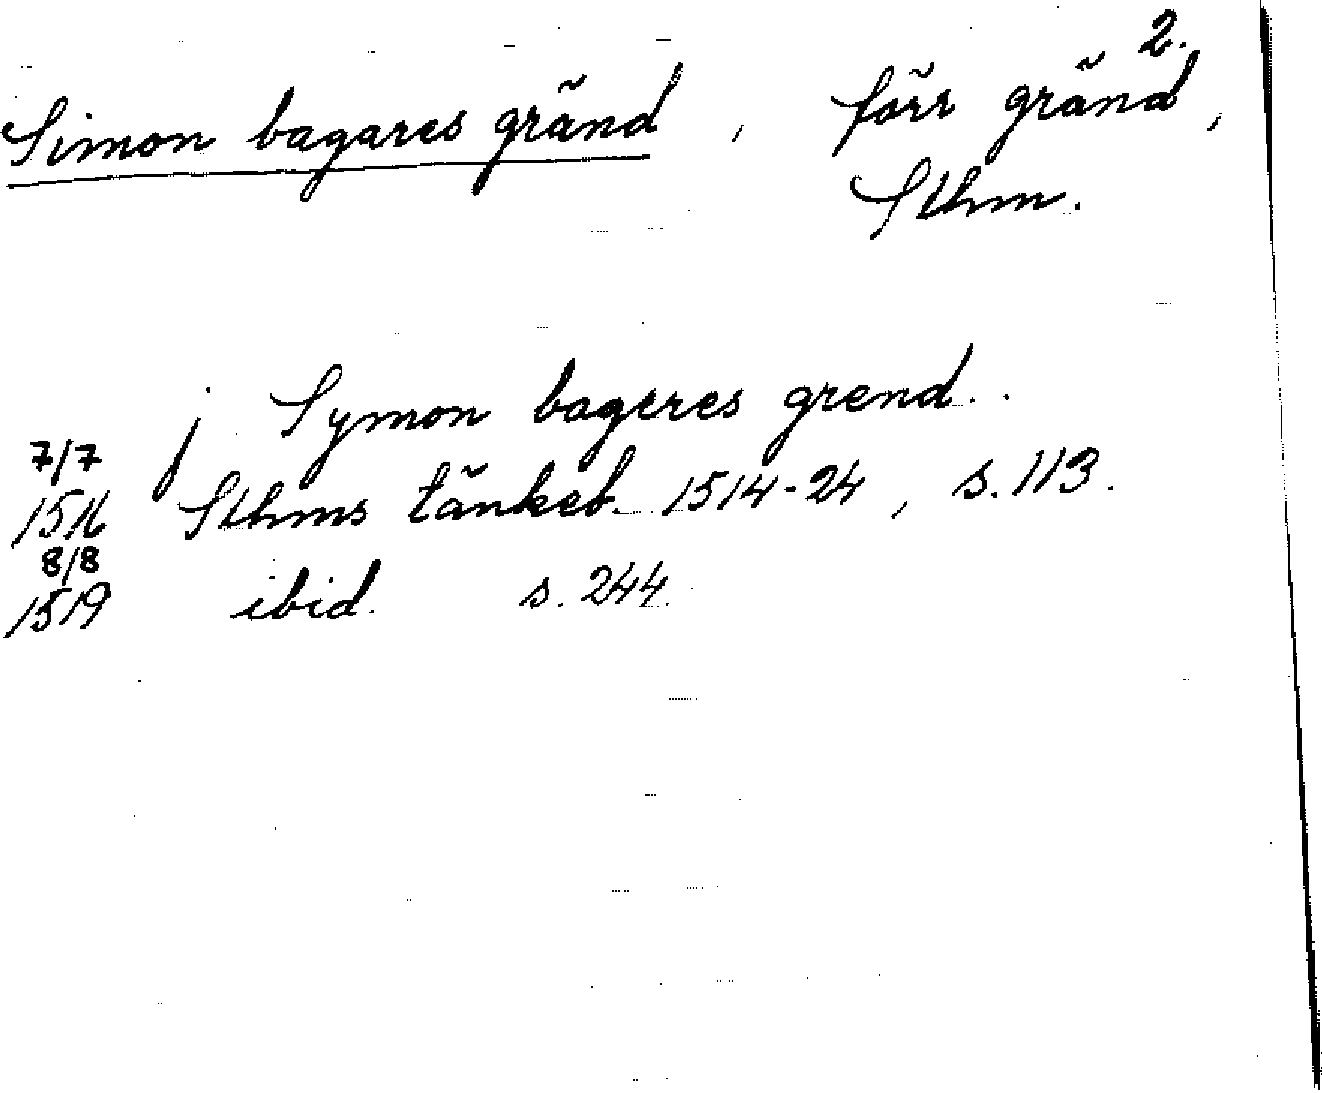 2.
Simon bagares gränd, förr gränd,
Sthm.
j Symon bageres grend.
7/7
1516 Sthms tänkeb. 1514-24, s. 113.
8/8
1519 ibid. s. 244.